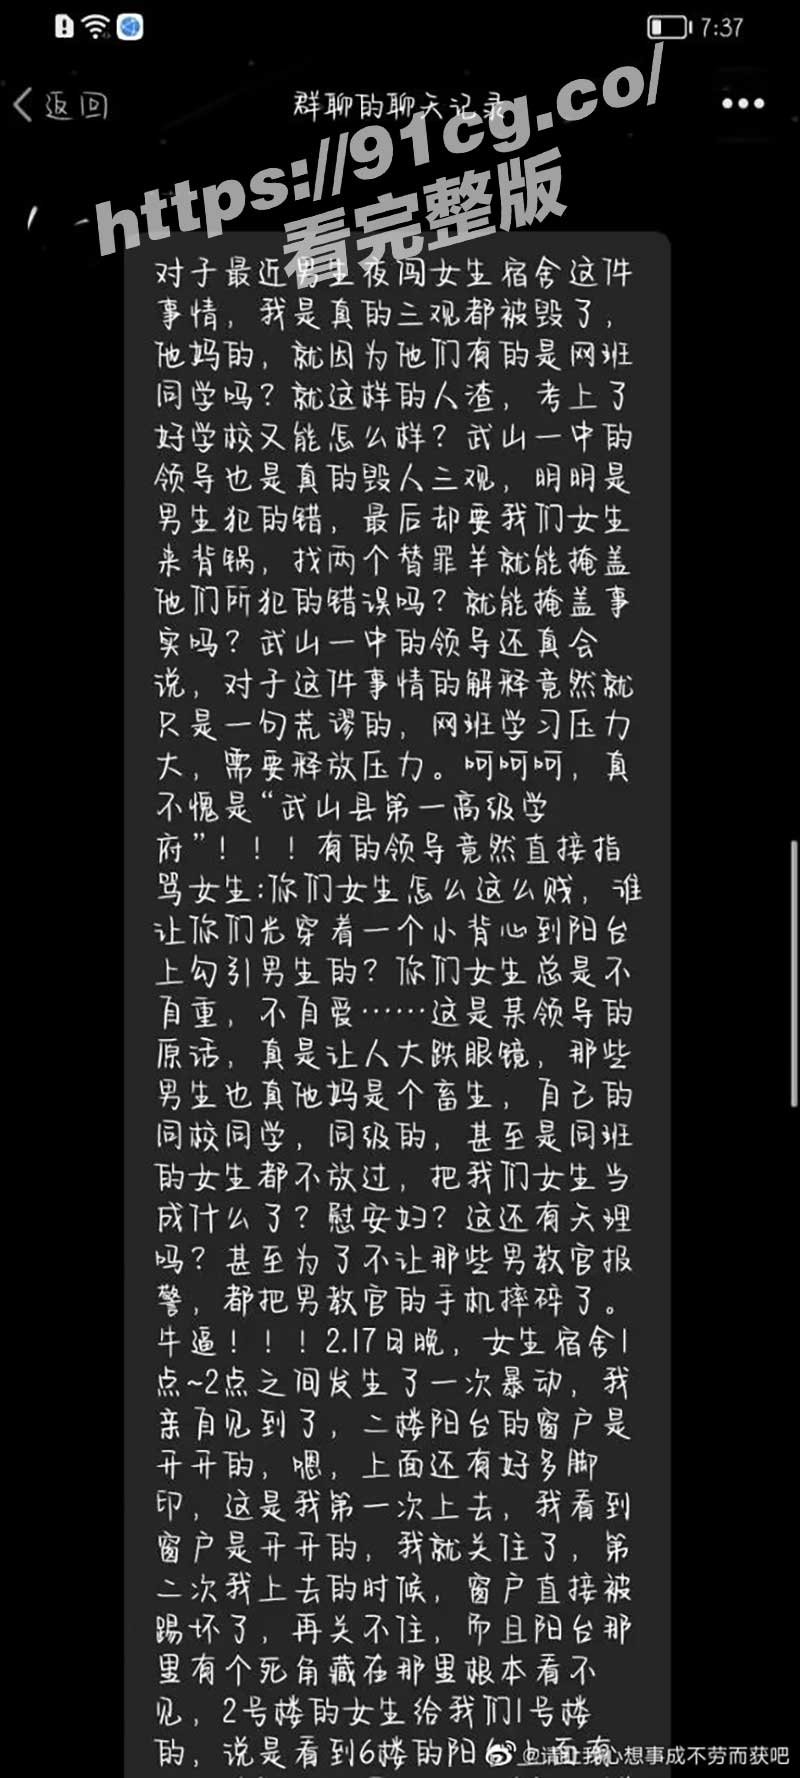 7:37
返回
群聊的聊天记录
https://91cg.co/
看完整版
对于最近男生夜闯女生宿舍这件
事情，我是真的三观都被毁了，
他妈的，就因为他们有的是网班
同学吗？就这样的人渣，考上了
好学校又能怎么样？武山一中的
领导也是真的毁人三观，明明是
男生犯的错，最后却要我们女生
来背锅，找两个替罪羊就能掩盖
他们所犯的错误吗？就能掩盖事
实吗？武山一中的领导还真会
说，对于这件事情的解释竟然就
只是一句荒谬的，网班学习压力
大，需要释放压力。呵呵呵，真
不愧是“武山县第一高级学
府”！！！有的领导竟然直接指
骂女生:你们女生怎么这么贱，谁
让你们光穿着一个小背心到阳台
上勾引男生的？你们女生总是不
自重，不自爱……这是某领导的
原话，真是让人大跌眼镜，那些
男生也真他妈是个畜生，自己的
同校同学，同级的，甚至是同班
的女生都不放过，把我们女生当
成什么了？慰安妇？这还有天理
吗？甚至为了不让那些男教官报
警，都把男教官的手机摔碎了。
牛逼！！！2.17日晚，女生宿舍1
点~2点之间发生了一次暴动，我
亲自见到了，二楼阳台的窗户是
开开的，嗯，上面还有好多脚
印，这是我第一次上去，我看到
窗户是开开的，我就关住了，第
二次我上去的时候，窗户直接被
踢坏了，再关不住，而且阳台那
里有个死角藏在那里根本看不
见，2号楼的女生给我们1号楼
的，说是看到6楼的阳台上面有
@请让我心想事成不劳而获吧